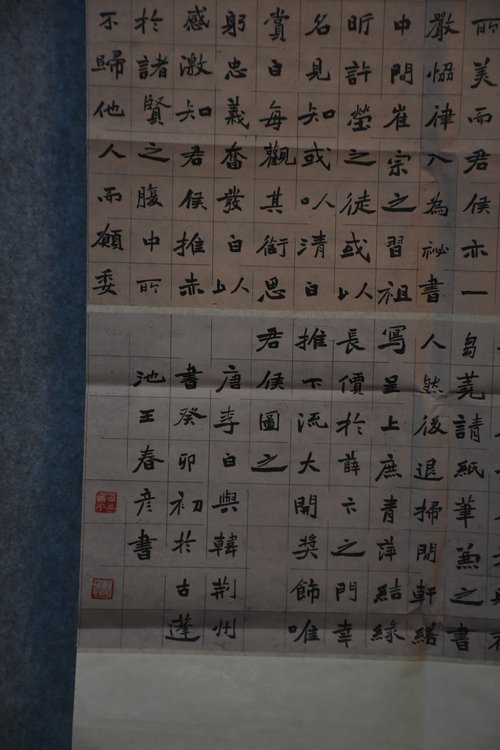 所美而君侯亦一
嚴協律入為祕書
中間崔宗之習祖
昕許瑩之徒或以
名見知或以清白
賞白每觀其銜恩
躬忠義奮發白以
感激知君侯推赤
於諸賢之腹中所
不歸他人而願委
芻蕘請紙筆兼之書
人然後退掃閒軒繕
寫呈上庶青萍結綠
長價於薛卞之門幸
推下流大開獎飾唯
君侯圖之
唐李白與韓荊州
書癸卯初於古蓬
池王春彥書